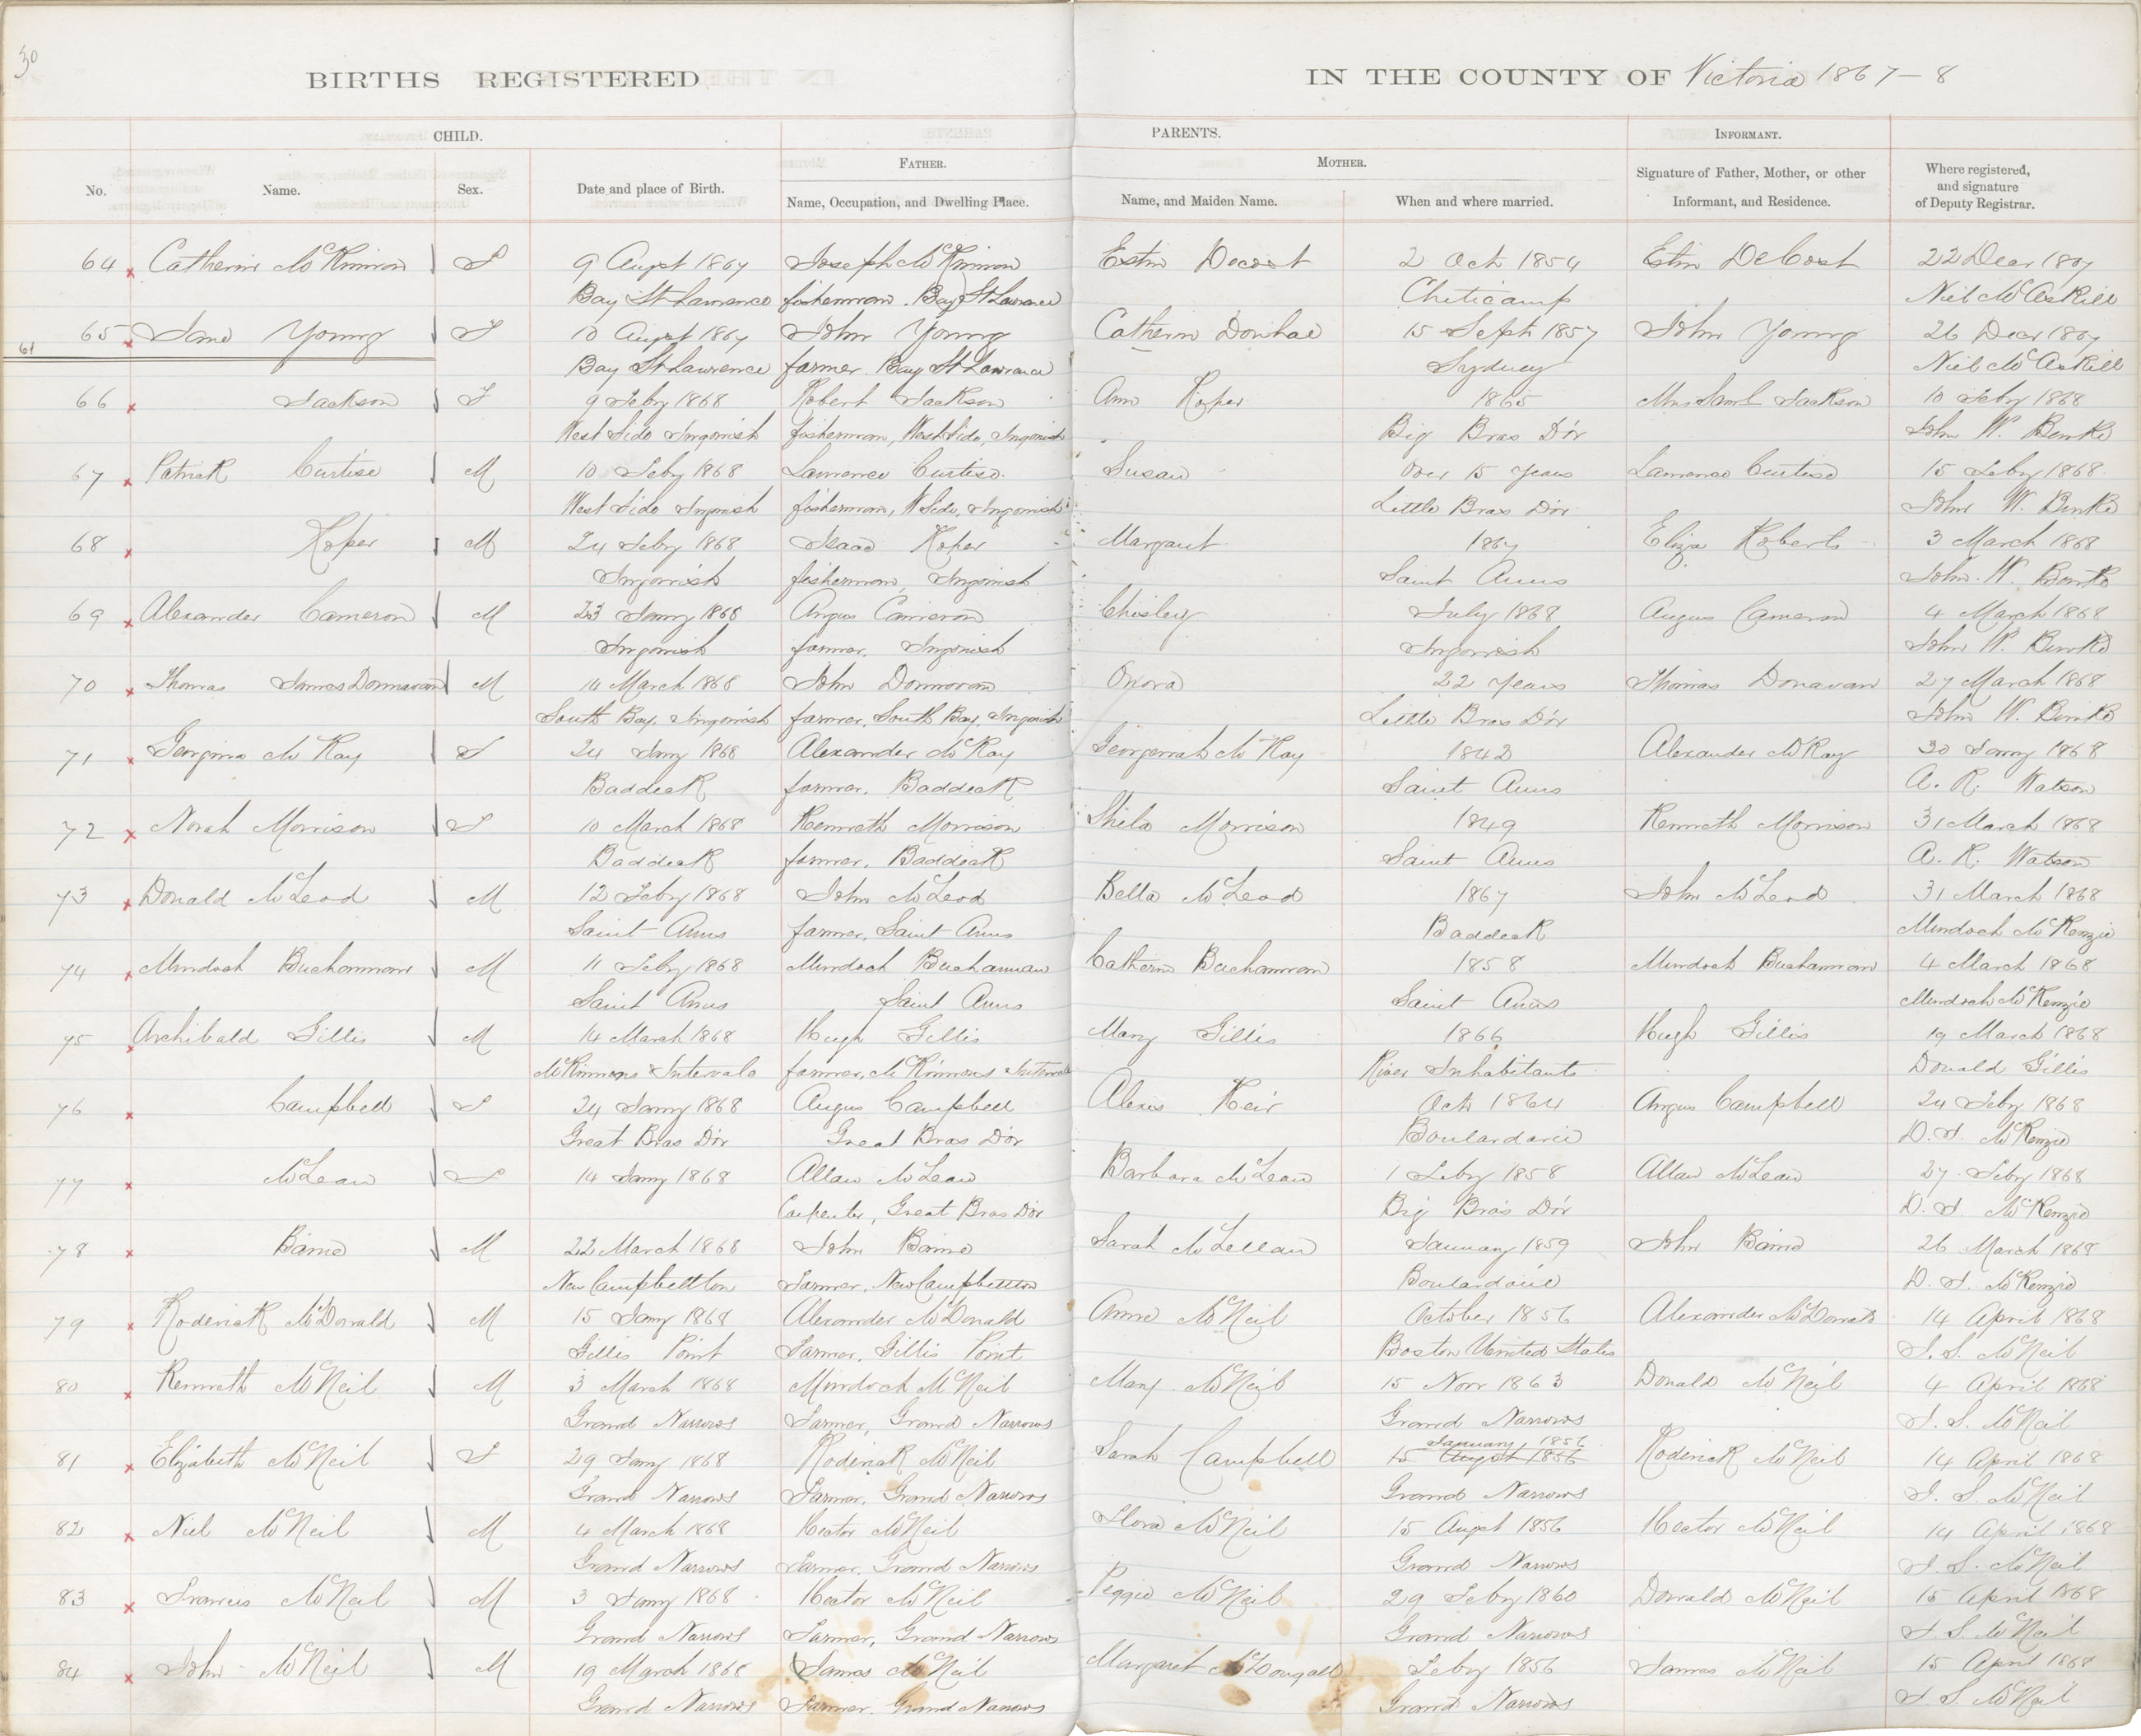 30
BIRTHS REGISTERED IN THE COUNTY OF Victoria 1867-8
CHILD. PARENTS. INFORMANT.
FATHER. MOTHER.
No. Name. Sex. Date and place of Birth. Name, Occupation, and Dwelling Place. Name, and Maiden Name. When and where married. Signature of Father, Mother, or other Informant, and Residence. Where registered, and signature of Deputy Registrar.
64 Catherine McKinnon F 9 Augst 1867 Joseph McKinnon Estin Decost 2 Oct 1854 Etin DeCost 22 Decr 1867
Bay St Lawrence fisherman. Bay St Lawrence Cheticamp Niel McAskill
65 Jane Young F 10 Augst 1867 John Young Cathern Donhae 15 Sept 1857 John Young 26 Decr 1867
61 Bay St Lawrence farmer Bay St Lawrence Sydney Niel McAskill
66 Jackson F 9 Feby 1868 Robert Jackson Ann Roper 1865 Mrs Saml Jackson 10 Feby 1868
West Side Ingonish fisherman, West Side, Ingonish Big Bras D'or John W. Burke
67 Patrick Curtise M 10 Feby 1868 Lawrence Curtise. Susan Over 15 years Lawrence Curtise 15 Feby 1868
West Side Ingonish fisherman, W Side, Ingonish Little Bras D'or John W. Burke
68 Roper M 24 Feby 1868 Isaac Roper Margaret 1867 Eliza Roberts 3 March 1868
Ingonish fisherman, Ingonish Saint Anns John W. Burke
69 Alexander Cameron M 23 Jany 1868 Angus Cameron Chisley July 1868 Angus Cameron 4 March 1868
Ingonish farmer, Ingonish Ingonish John W. Burke
70 Thomas James Donnavan M 14 March 1868 John Donnovan Onora 22 years Thomas Donavan 27 March 1868
South Bay, Ingonish farmer, South Bay, Ingonish Little Bras D'or John W. Burke
71 Georgina McKay F 24 Jany 1868 Alexander McKay Georgenah McKay 1842 Alexander McKay 30 Jany 1868
Baddeck farmer. Baddeck Saint Anns A. R. Watson
72 Norah Morrison F 10 March 1868 Kenneth Morrison Shila Morrison 1849 Kenneth Morrison 31 March 1868
Baddeck farmer. Baddeck Saint Anns A. R. Watson
73 Donald McLeod M 12 Feby 1868 John McLeod Bella McLeod 1867 John McLeod 31 March 1868
Saint Anns farmer, Saint Anns Baddeck Murdoch McKenzie
74 Murdoch Buchannan M 11 Feby 1868 Murdoch Buchannan Catherine Buchannan 1858 Murdoch Buchannan 4 March 1868
Saint Anns Saint Anns Saint Anns Murdoch McKenzie
75 Archibald Gillis M 14 March 1868 Hugh Gillis Mary Gillis 1866 Hugh Gillis 19 March 1868
McKinnons Intervale farmer, McKinnons Intervale River Inhabitants Donald Gillis
76 Campbell F 24 Jany 1868 Angus Campbell Alexis Keir Oct 1864 Angus Campbell 24 Feby 1868
Great Bras D'or Great Bras D'or Boulardarie D. F. McKenzie
77 McLean F 14 Jany 1868 Allan McLean Barbara McLean 1 Feby 1858 Allan McLean 27 Feby 1868
Carpenter, Great Bras D'or Big Bras D'or D. F. McKenzie
78 M 22 March 1868 John Sarah McLellan January 1859 John 26 March 1868
New Campbellton Farmer, New Campbellton Boulardarie D. F. McKenzie
79 Roderick McDonald M 15 Jany 1868 Alexander McDonald Anne McNeil October 1856 Alexander McDonald 14 April 1868
Gillis Point Farmer, Gillis Point Boston United States S. S. McNeil
80 Kenneth McNeil M 3 March 1868 Murdoch McNeil Mary McNeil 15 Novr 1863 Donald McNeil 4 April 1868
Grand Narrows Farmer, Grand Narrows Grand Narrows S. S. McNeil
January 1856
81 Elizabeth McNeil F 29 Jany 1868 Roderick McNeil Sarah Campbell 15 Augst 1856 Roderick McNeil 14 April 1868
Grand Narrows Farmer, Grand Narrows Grand Narrows S. S. McNeil
82 Niel McNeil M 4 March 1868 Hector McNeil Flora McNeil 15 Augst 1856 Hector McNeil 14 April 1868
Grand Narrows Farmer, Grand Narrows Grand Narrows S. S. McNeil
83 Francis McNeil M 3 Jany 1868 Hector McNeil Peggie McNeil 29 Feby 1860 Donald McNeil 15 April 1868
Grand Narrows Farmer, Grand Narrows Grand Narrows S. S. McNeil
84 John McNeil M 19 March 1868 James McNeil Margaret McDougall Feby 1856 James McNeil 15 April 1868
Grand Narrows Farmer. Grand Narrows Grand Narrows S. S. McNeil